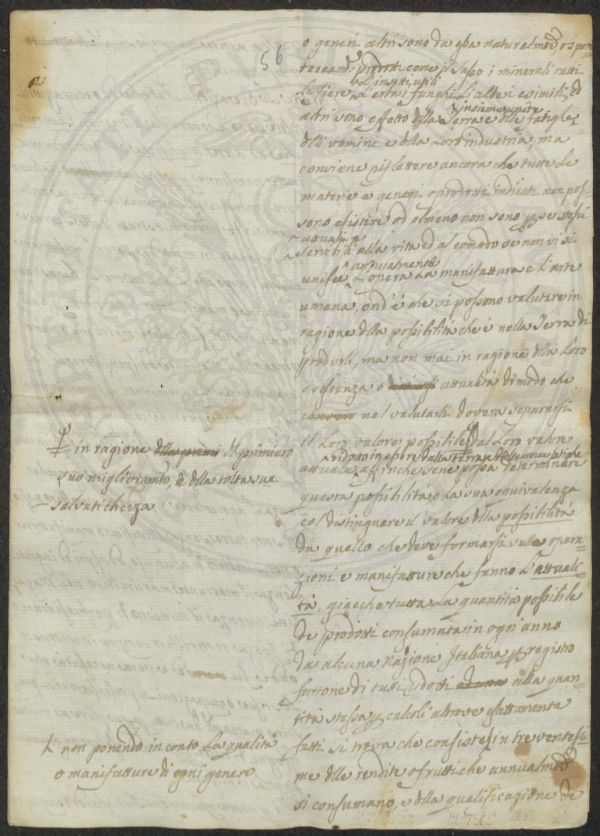 56
o generi altri sono da essa naturalmte o spon
taneamte prodotti come il sasso i minerali tutti
inutili
le fiere l'erbe i funghi l'alberi e simili, ed
insieme unite
altri sono effetto della Terra e delle fatighe
dell'uomini e della loro industria, ma
conviene riflettere ancora che tutte le
materie e generi o prodotti indicati non pos=
sono esistere od almeno non sono per se stessi
attuali
servibili alla vita ed al comodo se non vi si
annualmente
unisce l'opera la manifattura e l'arte
umana, ond'è che si possono valutare in
ragione della possibilità che è nella Terra di
produrli, ma non mai in ragione della loro
esistenza o attualità di modo che
nel valutarli dovrà separarsi
il loro valore possibile dal loro valore
attuale affinche se ne possa determinare
questa possibilità e la sua equivalenza
col distinguere il valore della possibilità
da quello che deve formarsi sulle opera=
zioni e manifatture che fanno l'attuali=
tà, giacche tutta la quantità possibile
de prodotti consumata in ogni anno
da alcuna Nazione Italiana per registro
fattone di tutti prodotti alla quan=
tità stessa per calcoli altrove esattamente
fatti si trova che consiste in tre ventesi=
me delle rendite o frutti che annualmte
si consumano, e della qualificazione de
in ragione del primiero
suo miglioramto, e della tolta sua
salvatichezza
non ponendo in conto la qualità
o manifatture di ogni genere